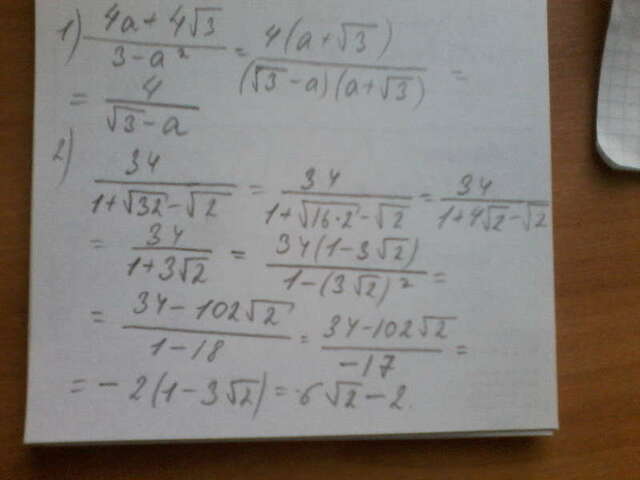 1) (4a+4√3)/(3-a²) = 4(a+√3)/((√3-a)(a+√3)) =
= 4/(√3-a)
2) 34/(1+√32-√2) = 34/(1+√(16·2)-√2) = 34/(1+4√2-√2)
= 34/(1+3√2) = 34(1-3√2)/(1-(3√2)²) =
= (34-102√2)/(1-18) = (34-102√2)/(-17) =
= -2(1-3√2) = 6√2-2